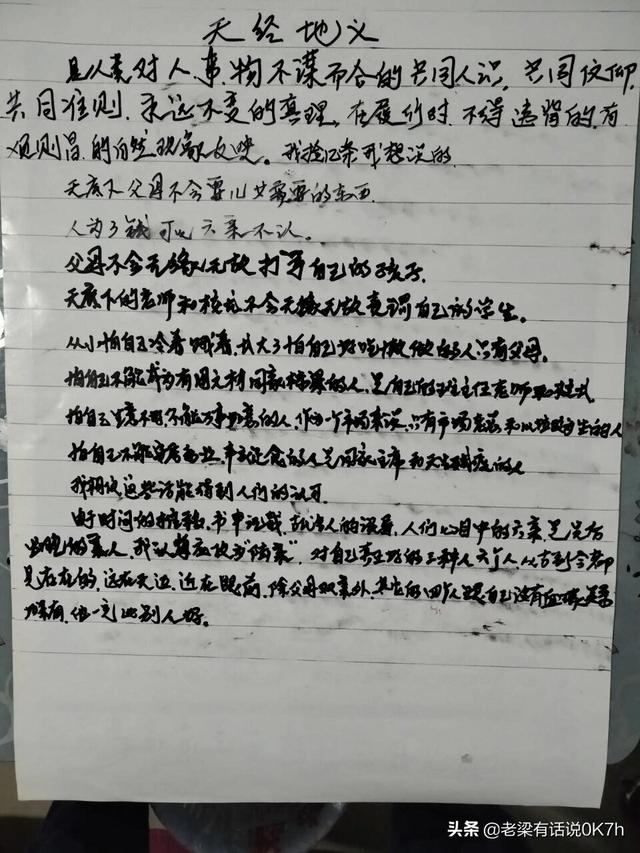 天经地义
是人类对人、事、物不谋而合的共同人识，共同信仰，
共同准则，永远不变的真理，在履行时，不得违背的，有
的自然现象反映。我捡几条我想说的
天底下父母不会要儿女需要的东西
人为了钱可以六亲不认。
父母不会无缘无故打骂自己的孩子。
天底下的老师和校长不会无缘无故责骂自己的学生。
从小怕自己冷着饿着，长大了怕自己的人只有父母。
怕自己不能成为有用之材国家栋梁的人，是自己的班主任老师
怕自己生意不明，不能万事如意的人，作为一个市场来说，只有市场老总和以垃圾为生的人
怕自己不能安居乐业，的人是国家主席和天
我相信这些话能得到人们的认可
由于时间的推移，书中记载，人们心目中的六亲是
的亲人，我认为应改为“陆亲”，对自己的三种人六个人，从古到今都
是存在的，远在天边，近在眼前，除父母双亲外，其它的四个人跟自己没有血缘关系
一定比别人好。
头条 @老梁有话说0K7h